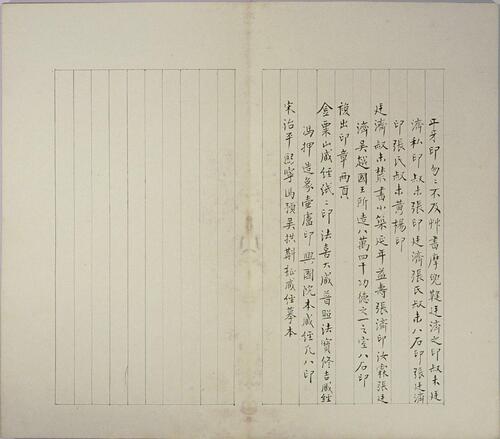 平安印勿々不及艸書摩兜鞬廷濟之印叔未廷
濟私印叔未張印廷濟張氏叔未八石印張廷濟
印張氏叔未黃楊印
廷濟叔未禁書小築延年益壽張濟印汝霖張廷
濟吳越國王所造八萬四千功德之一之室八石印
複出印章兩頁
金粟山藏經紙二印法喜大藏普照法寶修吉藏經
馮押造象壺盧印興國院本藏經凡八印
宋治平熙寧馮預吳拱斠秘藏經摹本